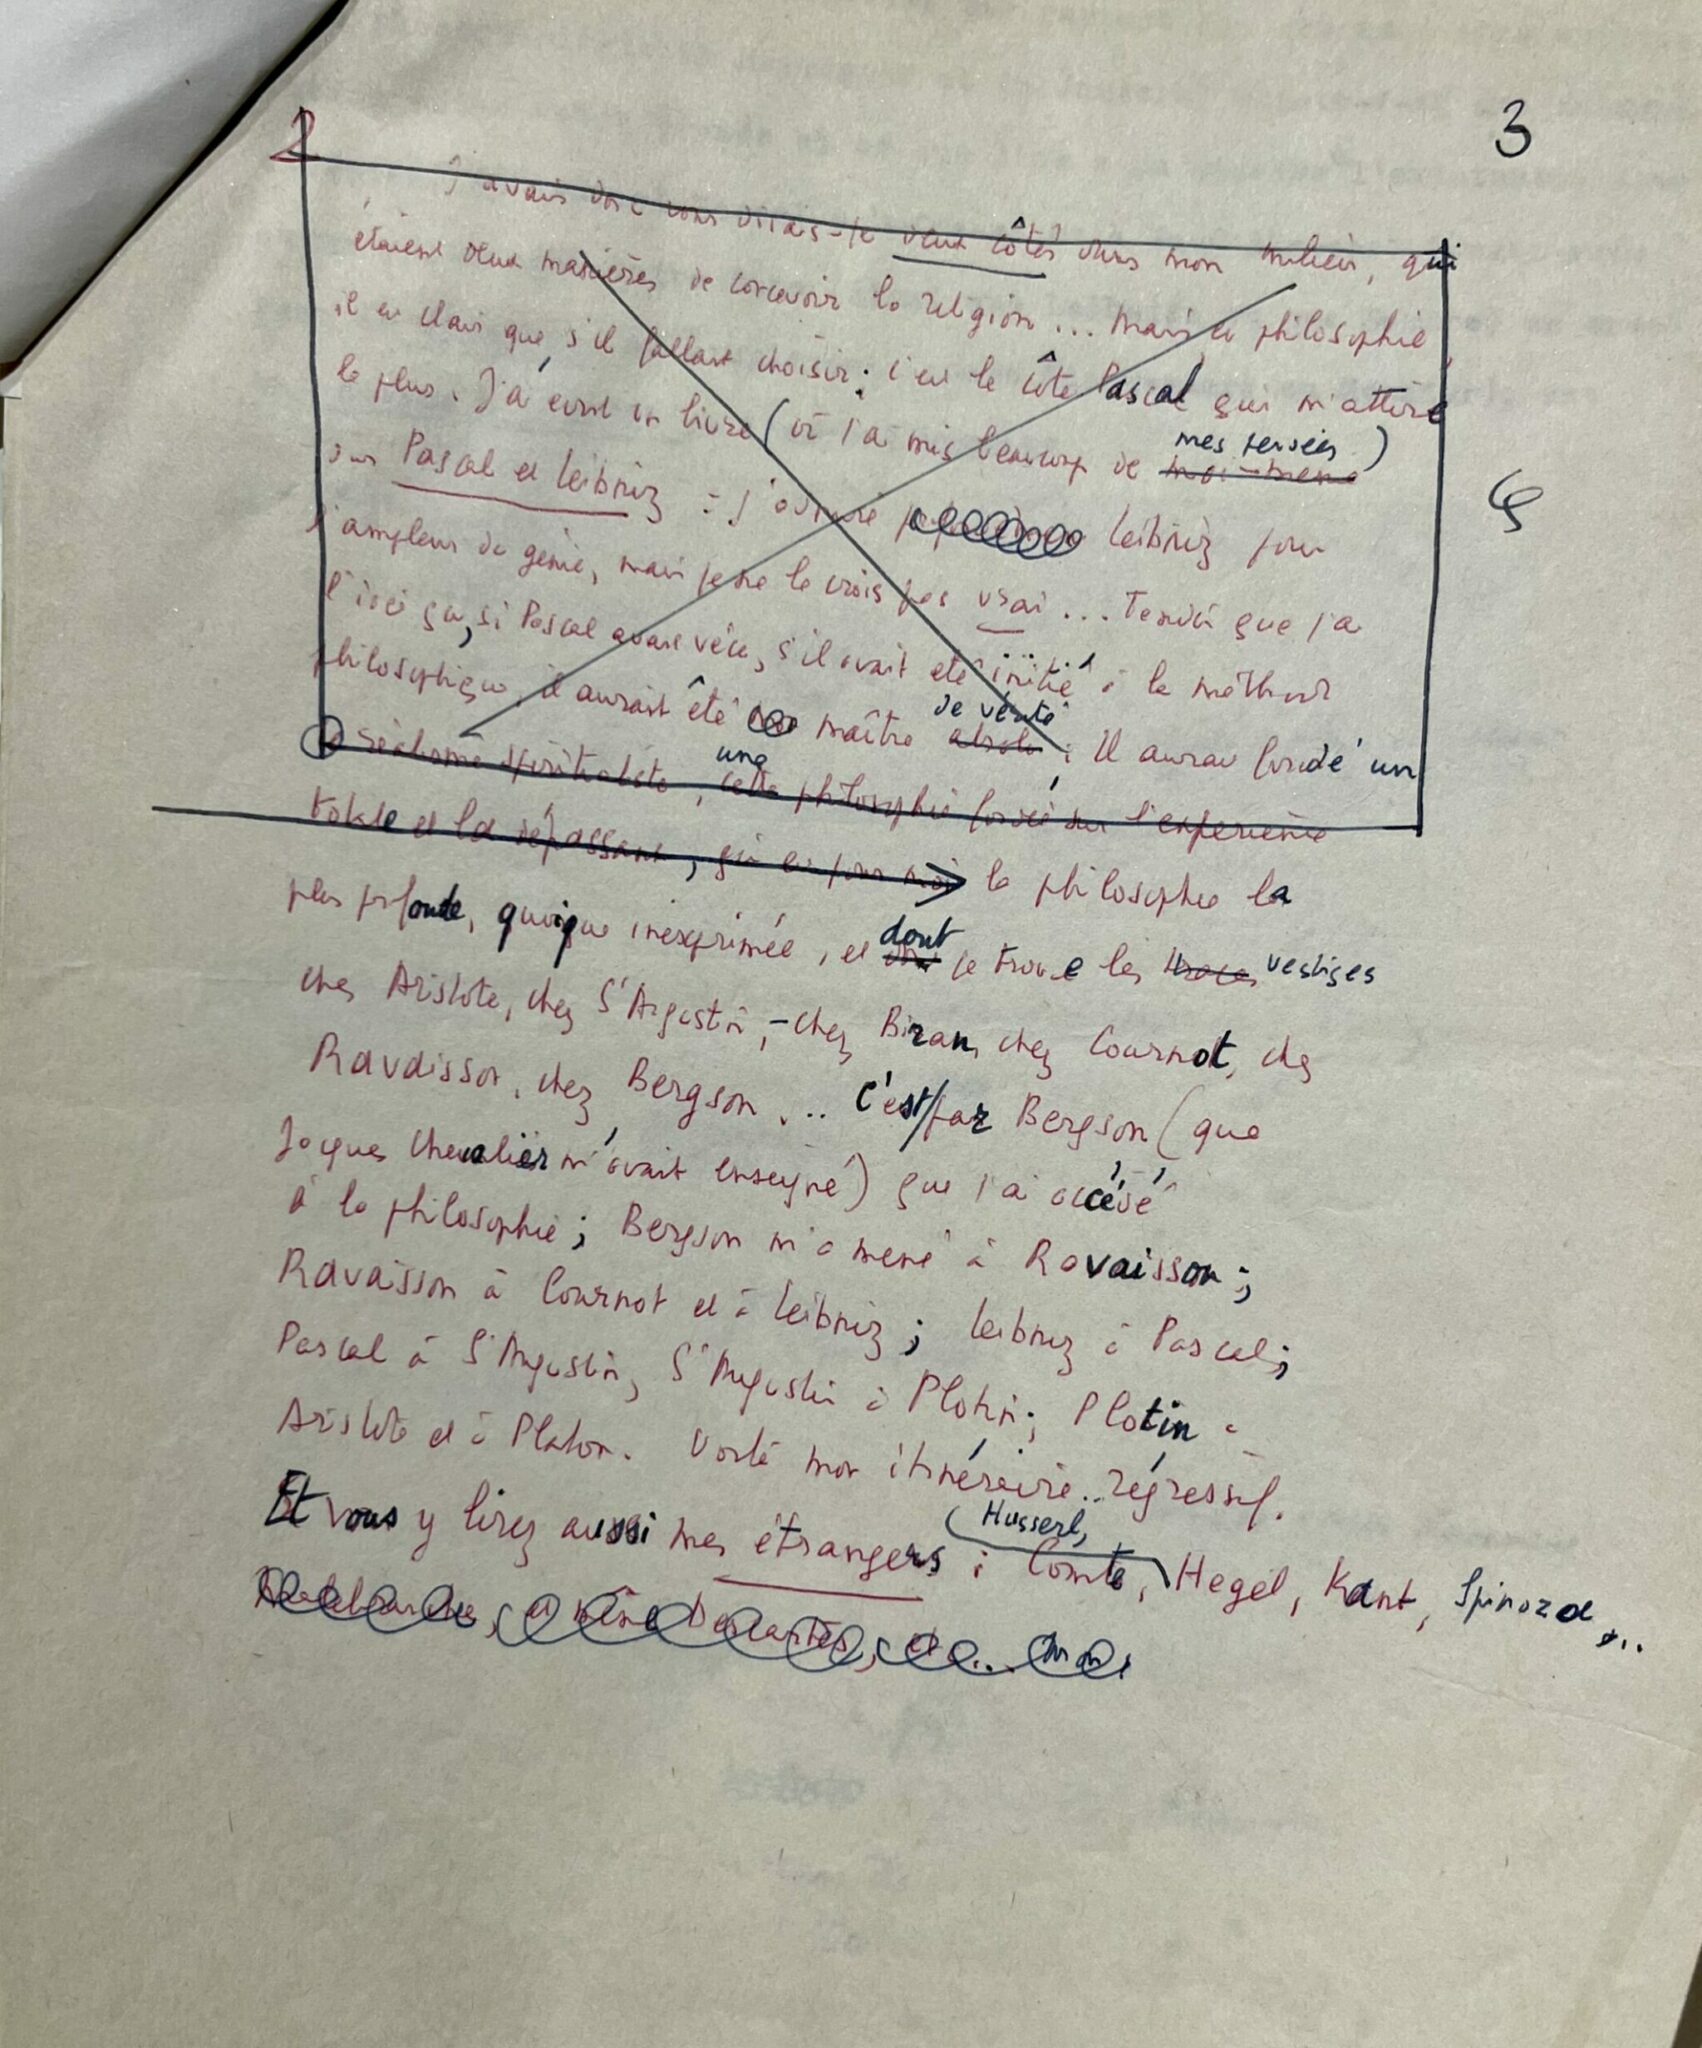 2
3
J'avais donc vous disais-je deux côtés dans mon milieu, qui
étaient deux manières de concevoir la religion... mais en philosophie,
il est clair que s'il fallait choisir : c'est le côté Pascal qui m'attire
mes pensées )
le plus. J'ai écrit un livre (où j'ai mis beaucoup de moi-même
sur Pascal et Leibniz : j'admire Leibniz pour
l'ampleur du génie, mais je ne le crois pas vrai... Tandis que j'ai
l'idée que, si Pascal avait vécu, s'il avait été initié à la méthode
de vérité
philosophique, il aurait été maître absolu : Il aurait fondé un
une
réalisme spiritualiste, cette philosophie fondée sur l'expérience
totale et la dépassant, qui est pour moi la philosophie la
dont
plus profonde, quoique inexprimée, et je trouve les traces vestiges
chez Aristote, chez St Augustin, - chez Biran, chez Cournot, chez
Ravaisson, chez Bergson... C'est/par Bergson (que
Jacques Chevalier m'avait enseigné) que j'ai accédé
à la philosophie ; Bergson m'a mené à Ravaisson ;
Ravaisson à Cournot et à Leibniz ; Leibniz à Pascal ;
Pascal à St Augustin, St Augustin à Plotin ; Plotin à
Aristote et à Platon. Voilà mon itinéraire.. régressif.
Husserl,
Et vous y lirez aussi mes étrangers : Comte, Hegel, Kant, Spinoza...
Malebranche, et même Descartes, et...